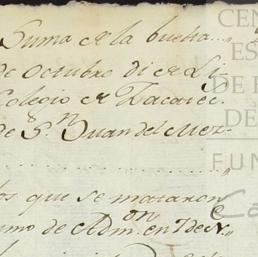 Suma de la buelta...
de Octubre di de Li
Colegio de Zacatec
de Sn Juan del Mez-
los que se mataron
umo de Admon en 1 de N.
CEN
ES
DE
DÈ
FUN